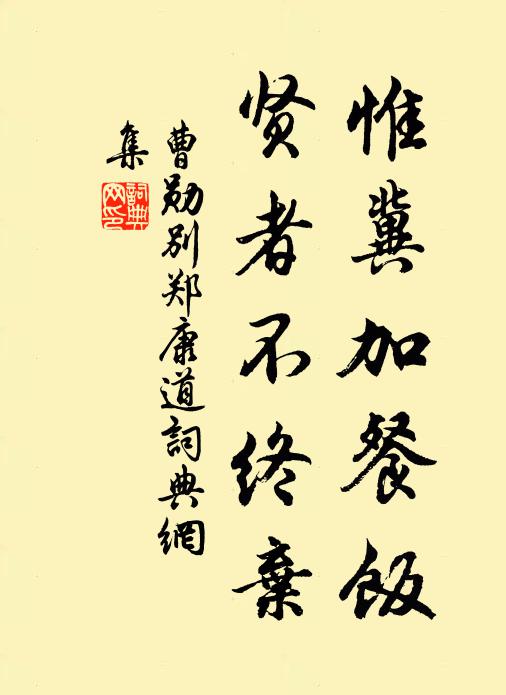 惟冀加餐飯
贤者不终棄
曹勋别郑康道詞典網
集
詞典網印